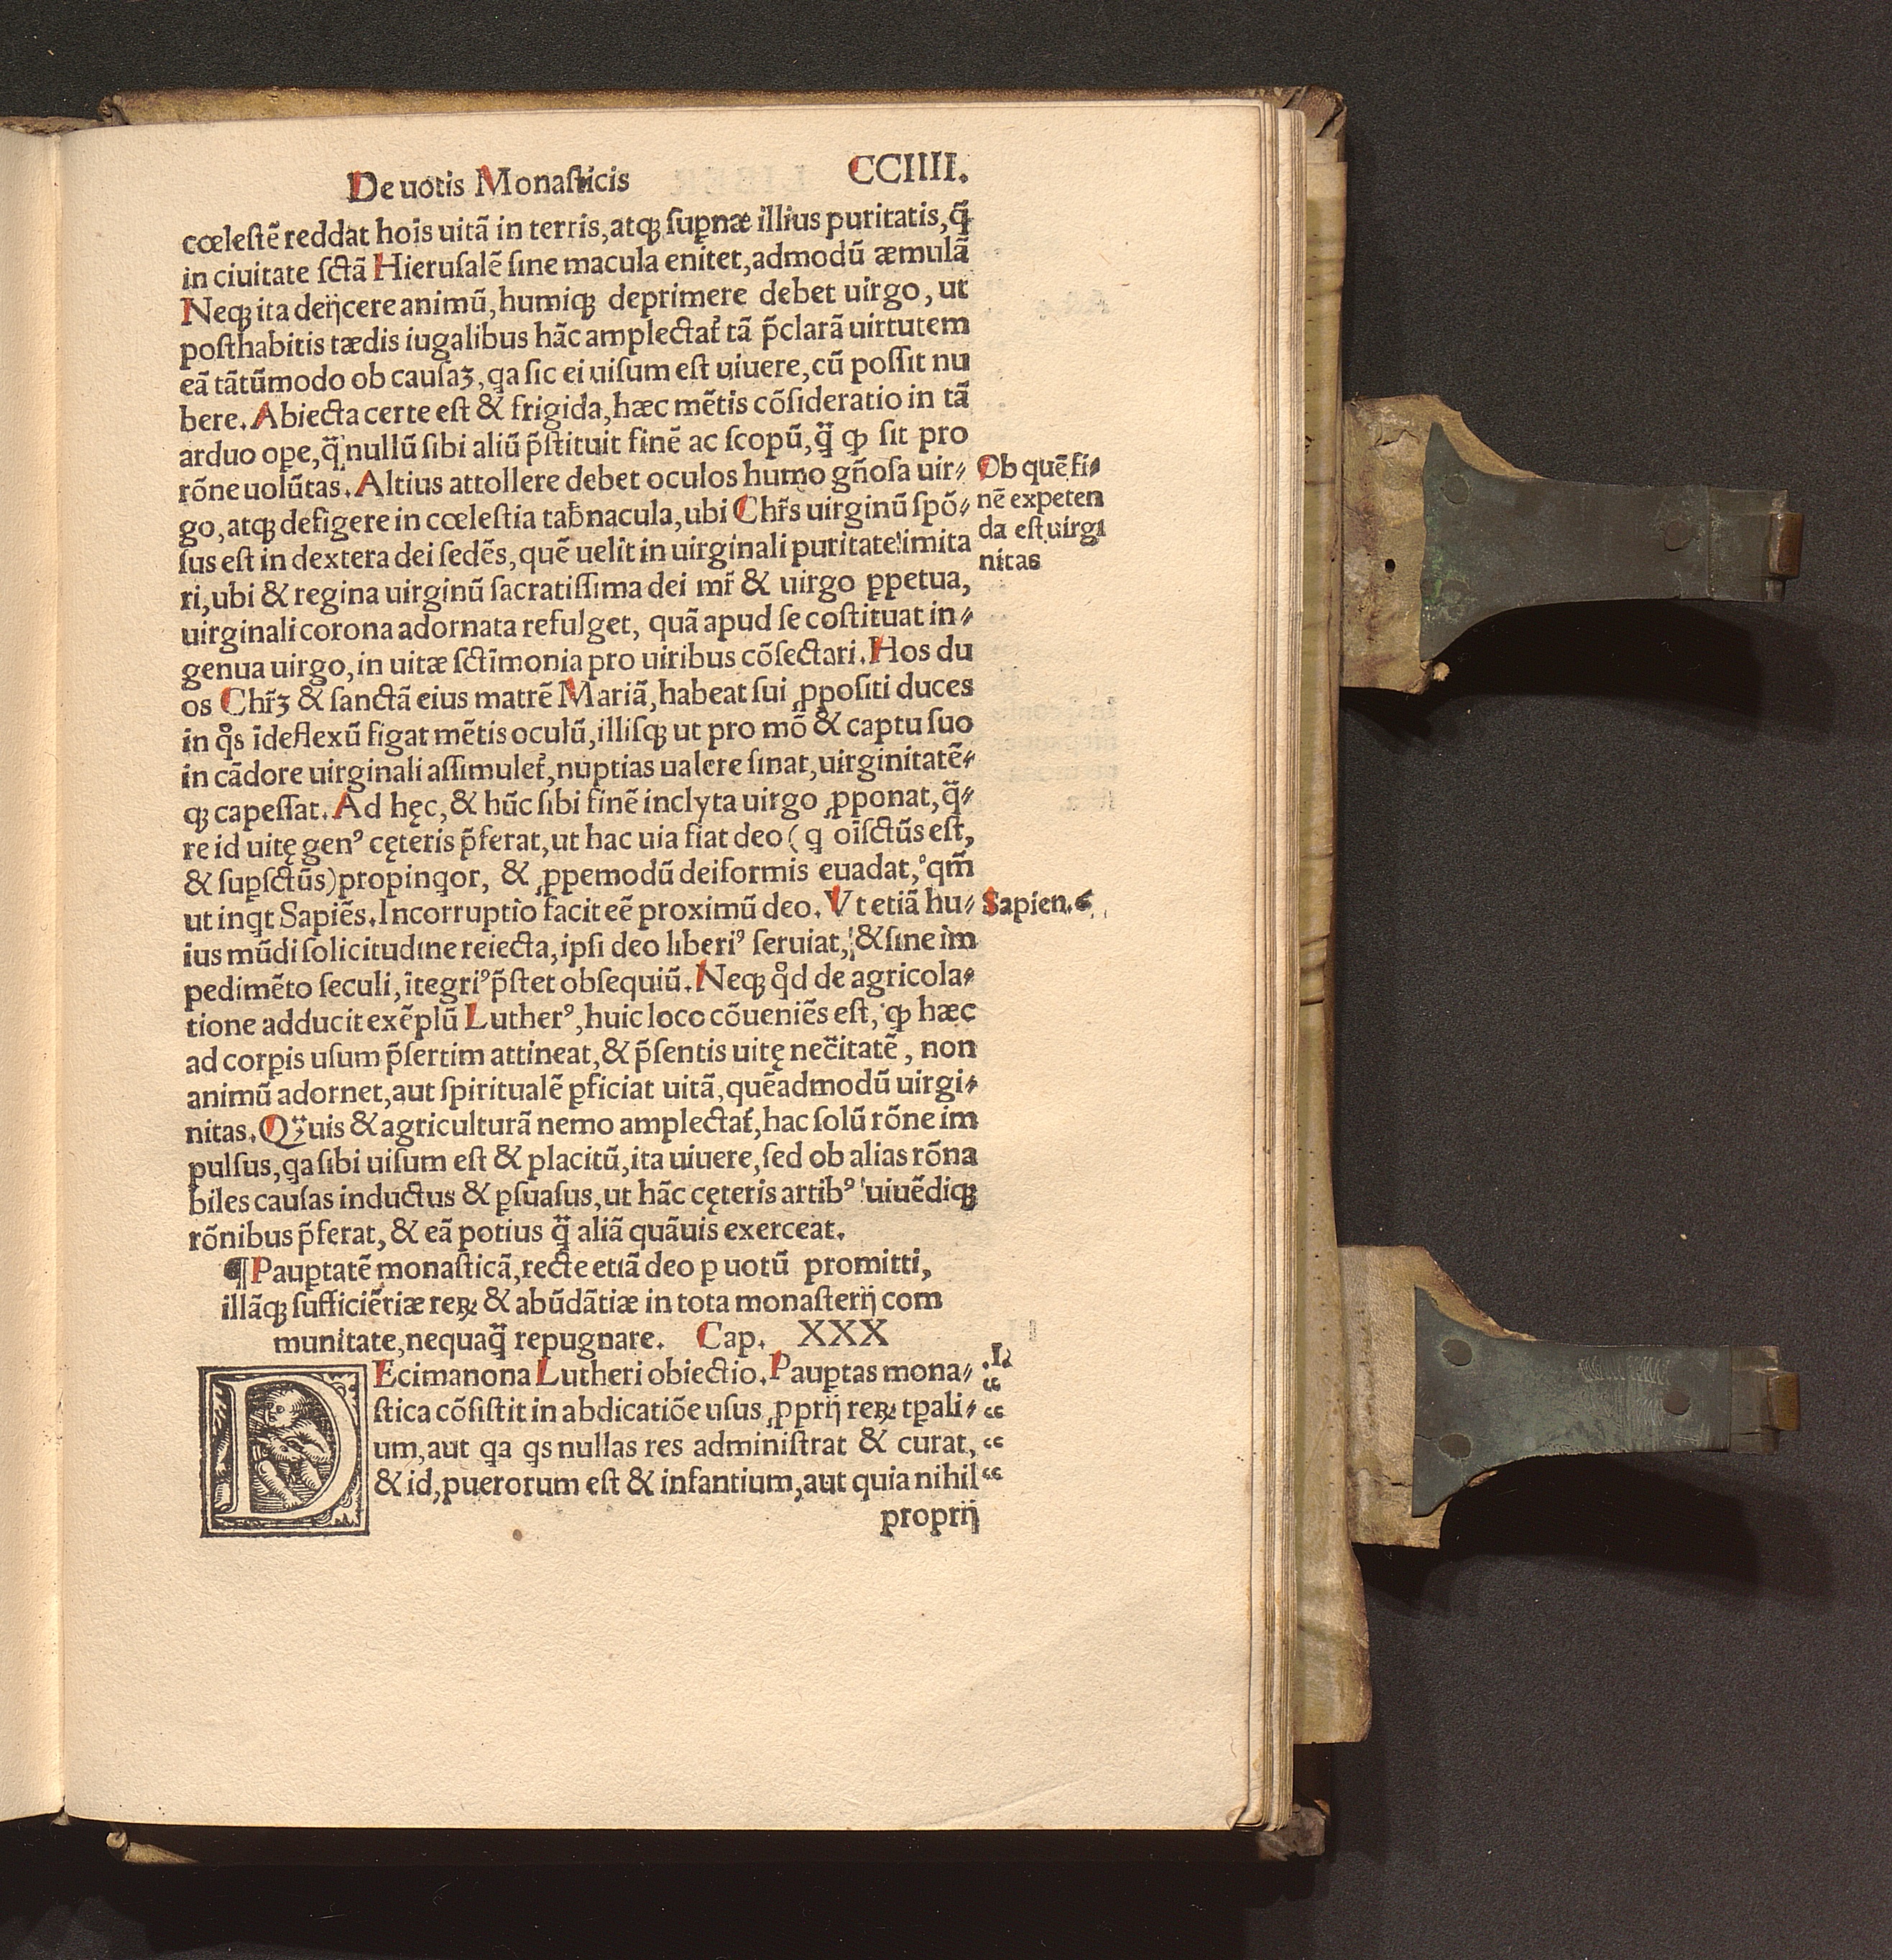 De uotis Monasticis CCIIII.
cœlestẽ reddat hoĩs uitã in terris, atqꝫ suꝑnæ illius puritatis, q̃
in ciuitate sctã Hierusalẽ sine macula enitet, admodũ æmulã
Neqꝫ ita deijcere animũ, humiqꝫ deprimere debet uirgo, ut
posthabitis tædis iugalibus hãc amplectat᷑ tã p̃clarã uirtutem
eã tãtũmodo ob causaꝫ, ꝗa sic ei uisum est uiuere, cũ possit nu
bere. Abiecta certe est & frigida, hæc mẽtis cõsideratio in tã
arduo oꝑe, q̃ nullũ sibi aliũ p̃stituit finẽ ac scopũ, q̃ ꝙ sit pro
rõne uolũtas. Altius attollere debet oculos humo gñosa uir⸗
go, atqꝫ defigere in cœlestia tab̃nacula, ubi Chr̃s uirginũ spõ⸗
sus est in dextera dei sedẽs, quẽ uelit in uirginali puritate imita
ri, ubi & regina uirginũ sacratissima dei mr̃ & uirgo ꝑpetua,
uirginali corona adornata refulget, quã apud se costituat in⸗
genua uirgo, in uitæ sctĩmonia pro uiribus cõsectari. Hos du
os Chr̃ꝫ & sanctã eius matrẽ Mariã, habeat sui ꝓpositi duces
in qͦs ĩdeflexũ figat mẽtis oculũ, illisqꝫ ut pro mõ & captu suo
in cãdore uirginali assimulet᷑, nuptias ualere sinat, uirginitatẽ⸗
qꝫ capessat. Ad hęc, & hũc sibi finẽ inclyta uirgo ꝓponat, q̃⸗
re id uitę genꝰ cęteris p̃ferat, ut hac uia fiat deo (ꝗ oĩsctũs est,
& suꝑsctũs) propinꝗor, & ꝓpemodũ deiformis euadat, qm̃
ut inꝗt Sapiẽs. Incorruptio facit eẽ proximũ deo. Vt etiã hu⸗
ius mũdi solicitudine reiecta, ipsi deo liberiꝰ seruiat, & sine im
pedimẽto seculi, ĩtegriꝰ p̃stet obsequiũ. Neqꝫ qͦd de agricola⸗
tione adducit exẽplũ Lutherꝰ, huic loco cõueniẽs est, ꝙ hæc
ad corꝑis usum p̃sertim attineat, & p̃sentis uitę nec̃itatẽ, non
animũ adornet, aut spiritualẽ ꝑficiat uitã, quẽadmodũ uirgi⸗
nitas. Q̃uis & agriculturã nemo amplectat᷑, hac solũ rõne im
pulsus, ꝗa sibi uisum est & placitũ, ita uiuere, sed ob alias rõna
biles causas inductus & ꝑsuasus, ut hãc cęteris artibꝰ uiuẽdiqꝫ
rõnibus p̃ferat, & eã potius q̃ aliã quãuis exerceat.
Ob quẽ fi⸗
nẽ expeten
da est uirgi
nitas
Sapien. 6.
¶ Pauꝑtatẽ monasticã, recte etiã deo ꝑ uotũ promitti,
illãqꝫ sufficiẽtiæ reꝝ & abũdãtiæ in tota monasterij com
munitate, nequaq̃ repugnare. Cap. XXX
DEcimanona Lutheri obiectio. Pauꝑtas mona⸗
stica cõsistit in abdicatiõe usus ꝓprij reꝝ tꝑali⸗
um, aut ꝗa ꝗs nullas res administrat & curat,
& id, puerorum est & infantium, aut quia nihil
proprij